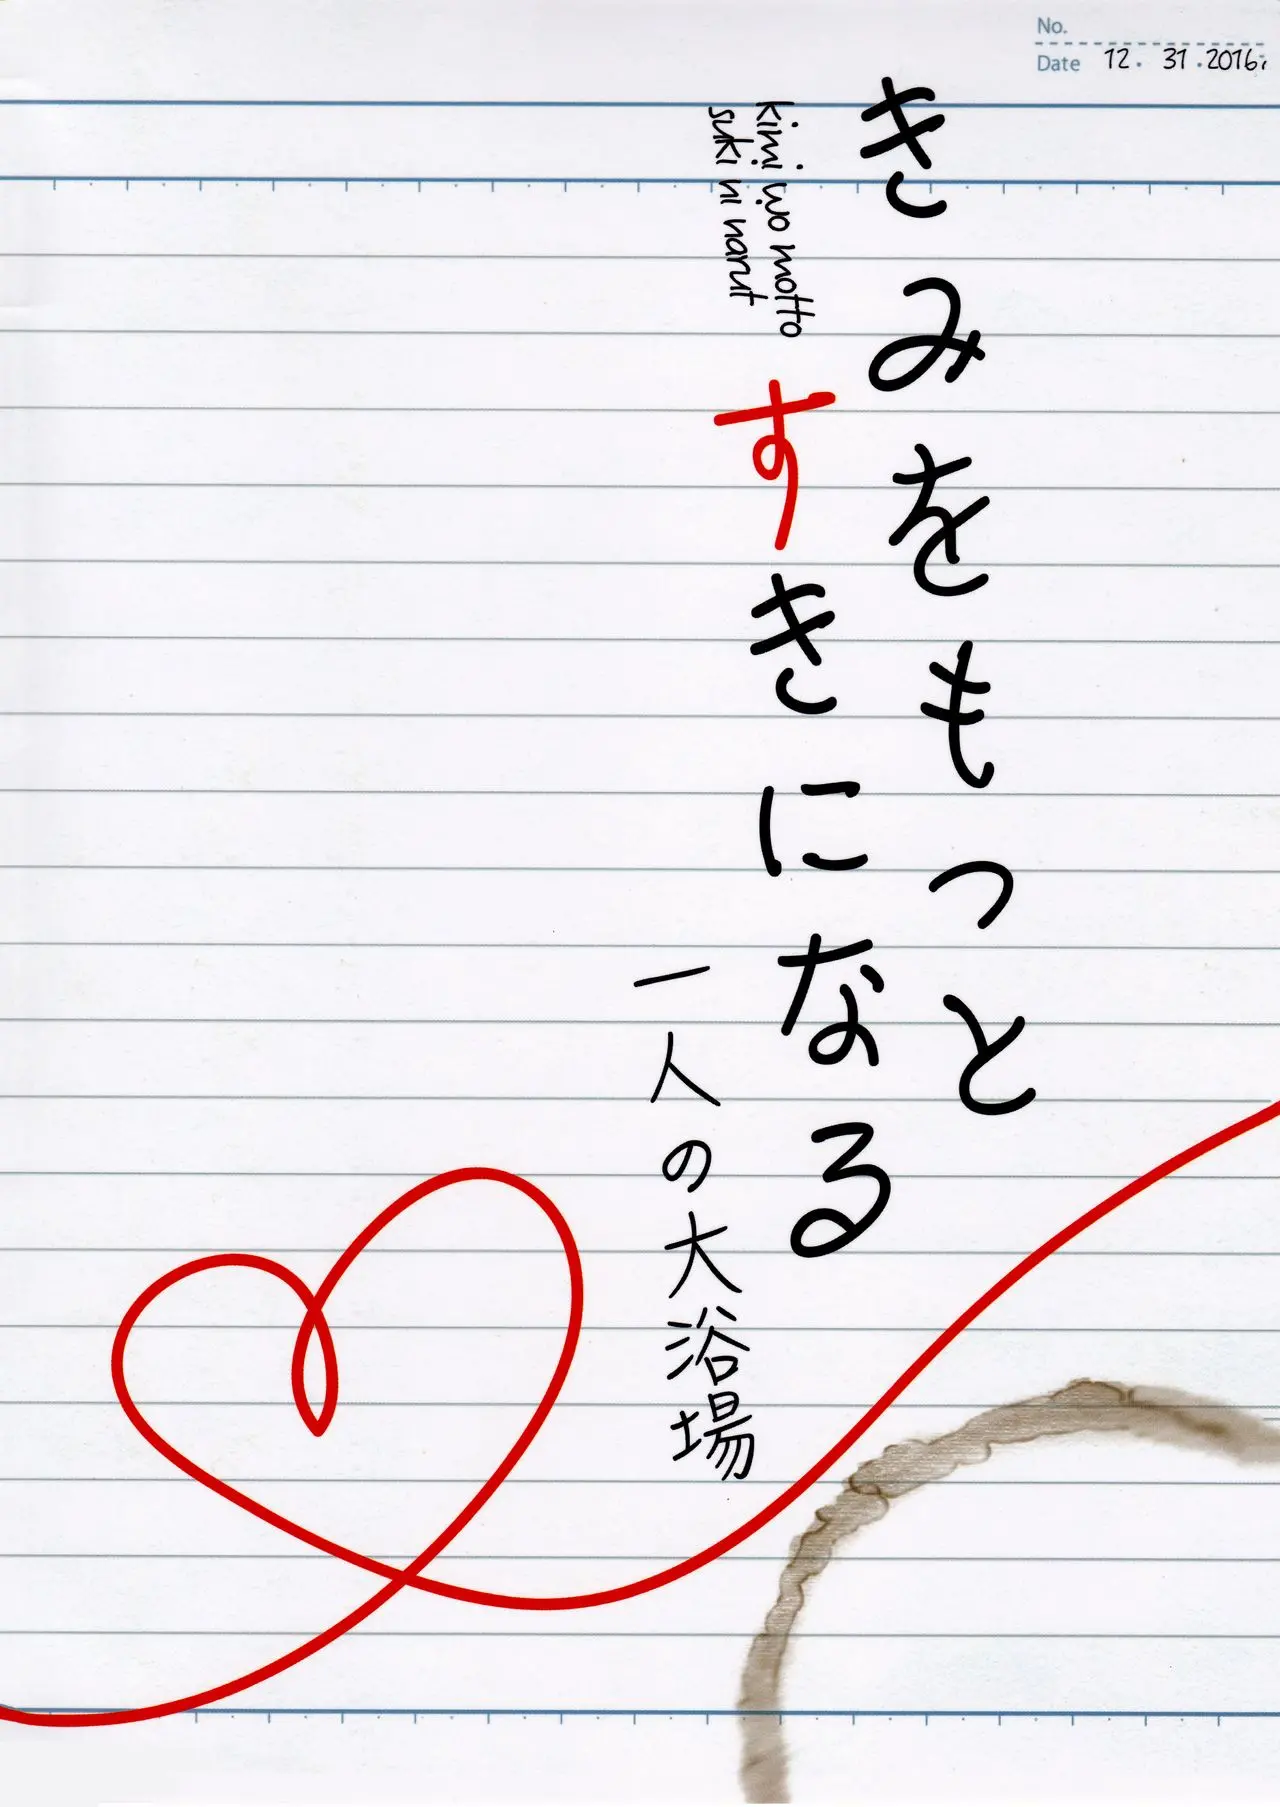 No.
Date 12. 31.2016.
きみをもっと
kimi wo motto
suki ni narut
すきになる
一人の大浴場